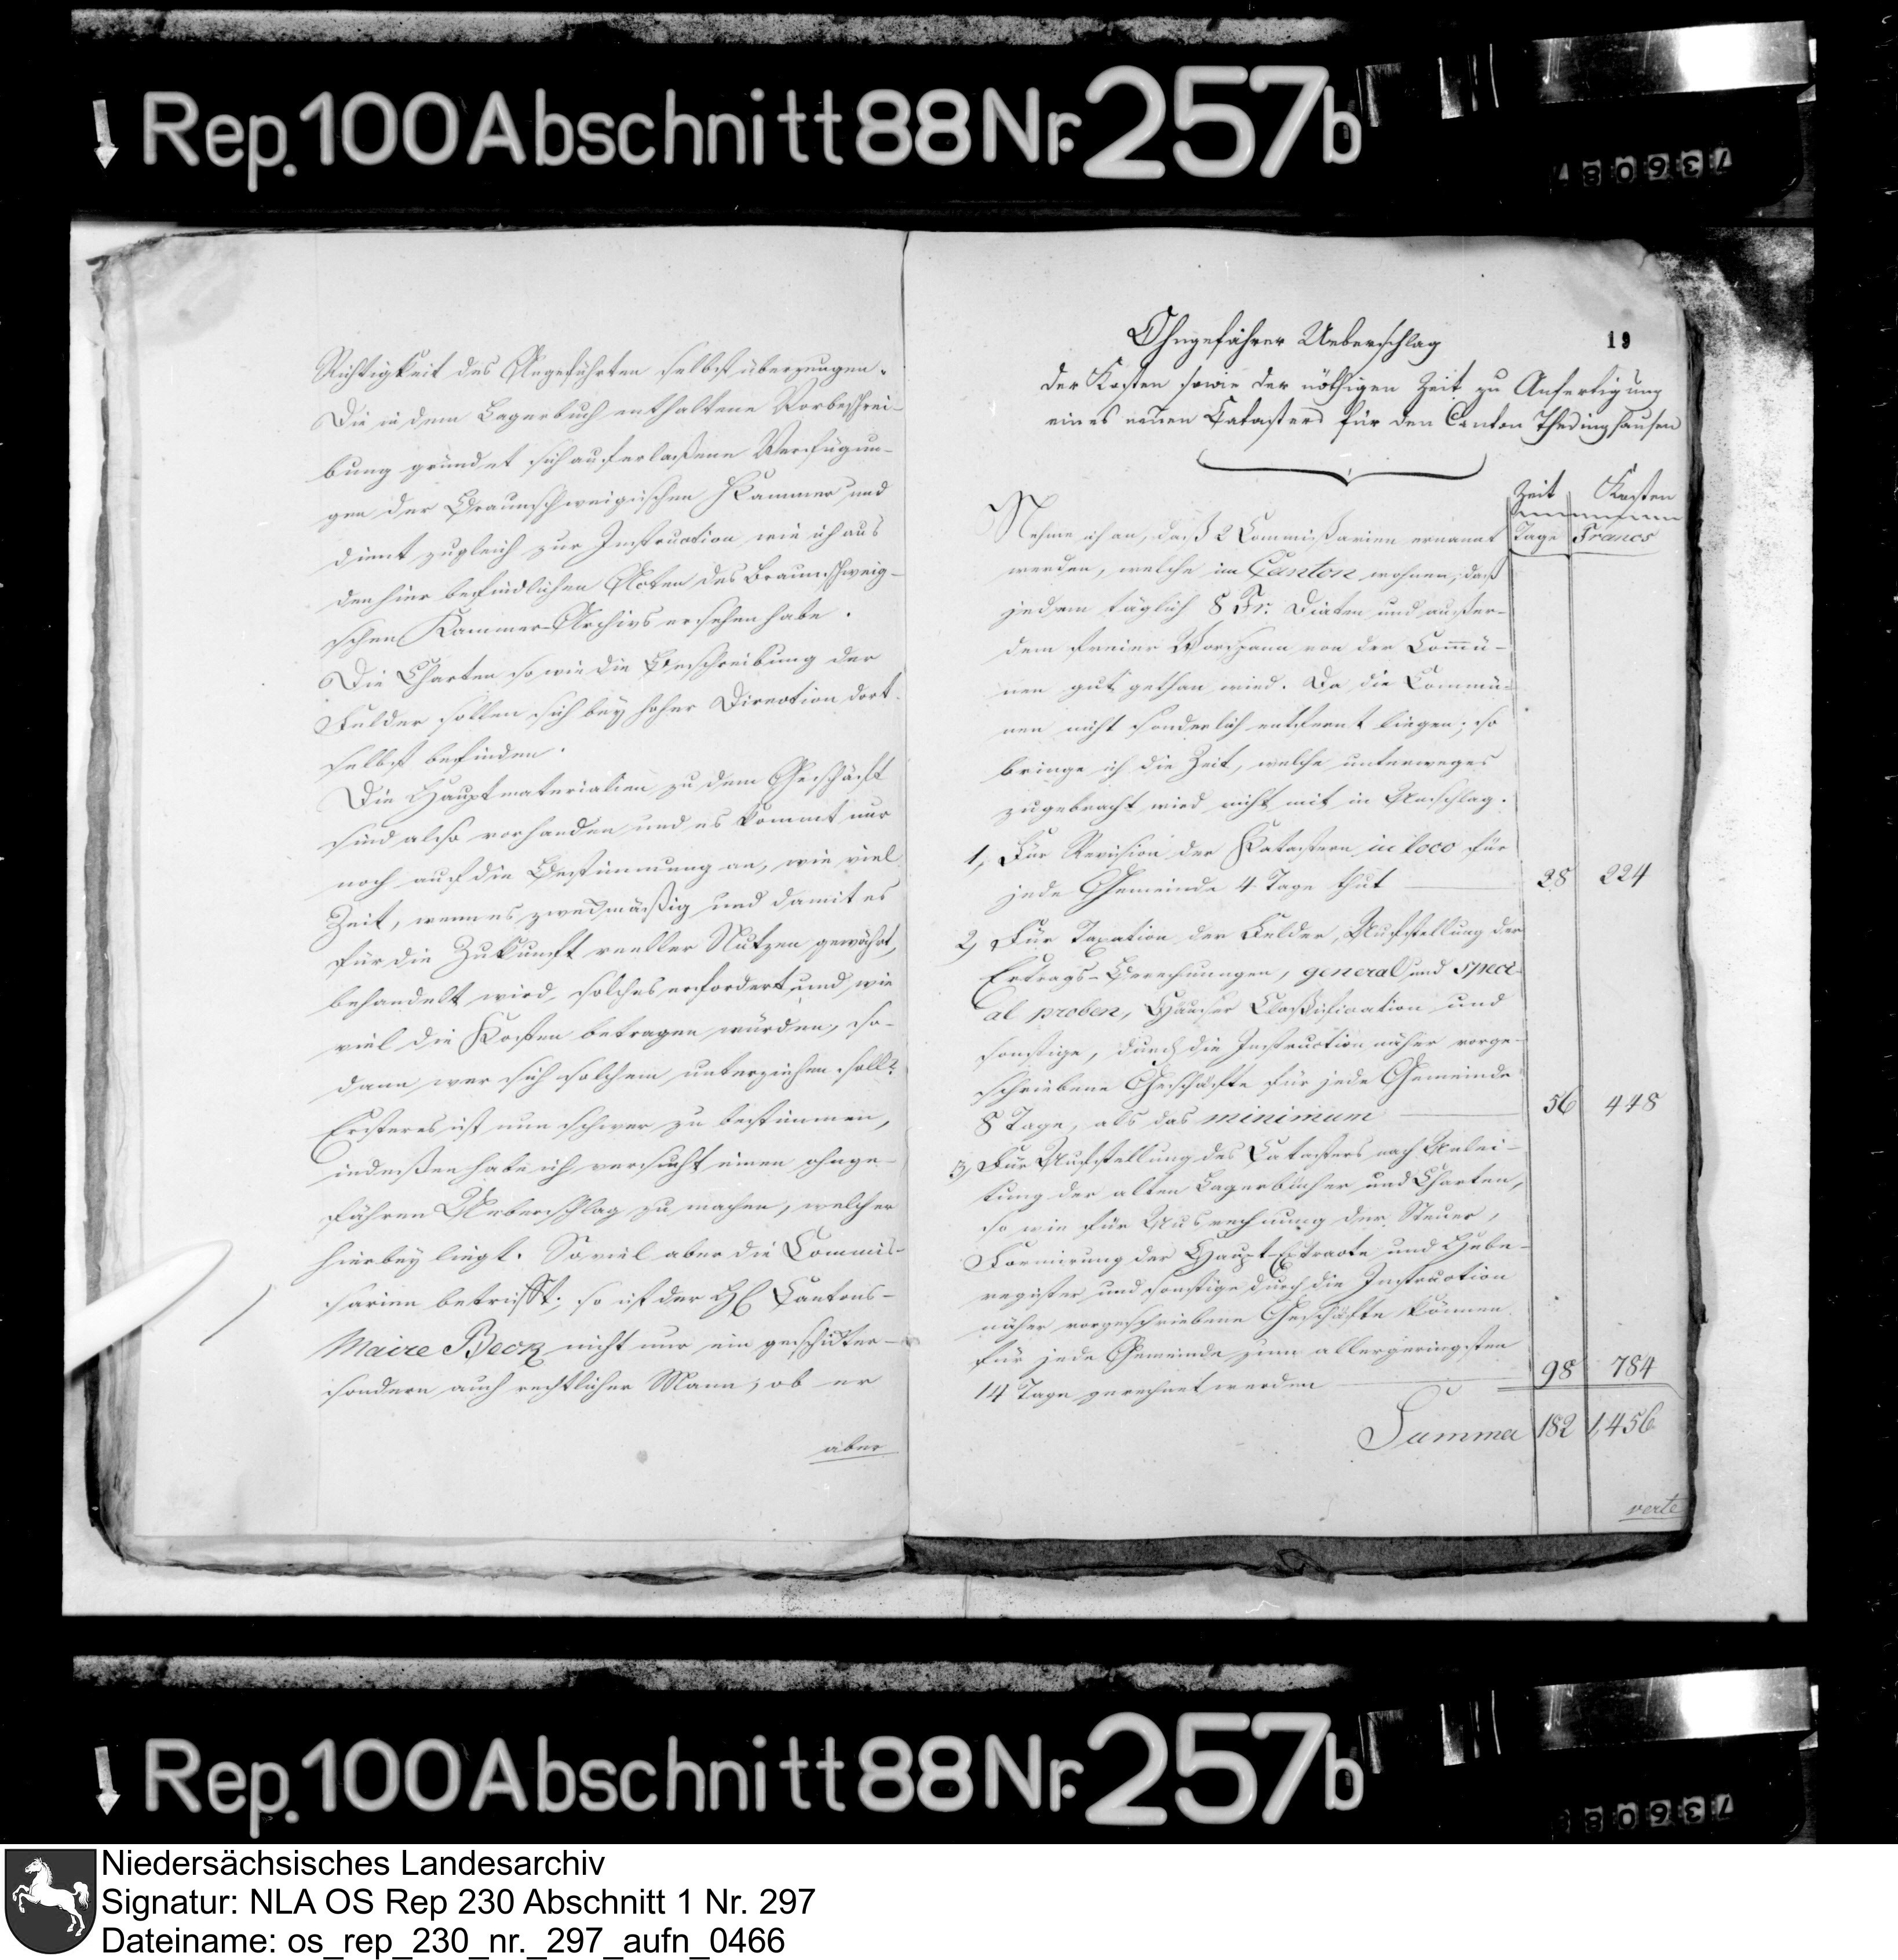 Rep. 100 Abschnitt 88 Nr. 257b
736087
Richtigkeit des Angeführten selbst überzeugen.
Die in dem Lagerbuch enthaltene Vorbeschrei-
bung gründet sich auf erlaßene Verfügun-
gen der Braunschweigischen Kammer und
dient zugleich zur Instruction, wie ich aus
den hier befindlichen Acten des Braunschweig-
schen Kammer-Archivs ersehen habe.
Die Charten so wie die Beschreibung der
Felder sollen sich bey hoher Direction dort
selbst befinden.
Die Hauptmaterialien zu dem Geschäft
sind also vorhanden und es kommt nur
noch auf die Bestimmung an, wie viel
Zeit, wenn es zweckmäßig und damit es
für die Zukunft reeller Nutzen gewährt,
behandelt wird, solches erfordert und wie
viel die Kosten betragen würden, so-
dann wer sich solchem unterziehen soll?
Ersteres ist nun schwer zu bestimmen,
indeßen habe ich versucht einen ohnge-
fähren Ueberschlag zu machen, welcher
hierbey liegt. Soviel aber die Commis-
sarien betrifft, so ist der H. Cantons-
Maire Beck nicht nur ein geschickter-
sondern auch rechtlicher Mann; ob er
aber
19
Ohngefährer Ueberschlag
der Kosten sowie der nöthigen Zeit zu Anfertigung
eines neuen Catasters für den Canton Thedinghausen
Zeit Kosten
Tage Francs
Nehme ich an, daß 2 Commißarien ernannt
werden, welche im Canton wohnen, daß
jedem täglich 8 Fr. Diaten und außer-
dem freier Vorspann von der Commü-
nen gut gethan wird. Da die Commü-
nen nicht sonderlich entfernt liegen; so
bringe ich die Zeit, welche unterweges
zugebracht wird nicht mit in Anschlag.
1, Für Revision der Katastern in loco für
jede Gemeinde 4 Tage thut 28 224
2, Für Taxation der Felder, Aufstellung der
Ertrags-Berechnungen, general und speci-
al proben, Häuser Classification und
sonstige, durch die Instruction näher vorge-
schriebene Geschäfte für jede Gemeinde
8 Tage, als das minimum 56 448
3, Für Aufstellung des Catasters nach Anlei-
tung der alten Lagerbücher und Charten,
so wie für Ausrechnung der Steuer,
Formirung der Haupt-Extracte und Hebe-
register und sonstige durch die Instruction
näher vorgeschriebene Geschäfte können
für jede Gemeinde zum allergeringsten
14 Tage gerechnet werden 98 784
Summa 182 1,456
verte
Rep. 100 Abschnitt 88 Nr. 257b
73608
Niedersächsisches Landesarchiv
Signatur: NLA OS Rep 230 Abschnitt 1 Nr. 297
Dateiname: os_rep_230_nr._297_aufn_0466